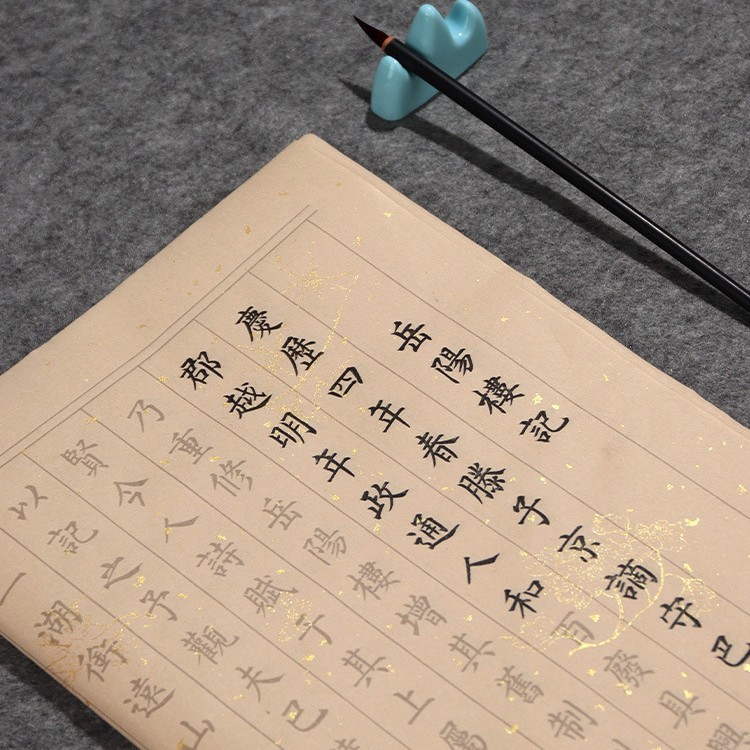 岳陽樓記
慶歷四年春滕子京謫守巴
郡越明年政通人和百廢具興
乃重修岳陽樓增其舊制
賢今人詩賦于其上屬
以記之予觀夫巴
一湖銜遠山